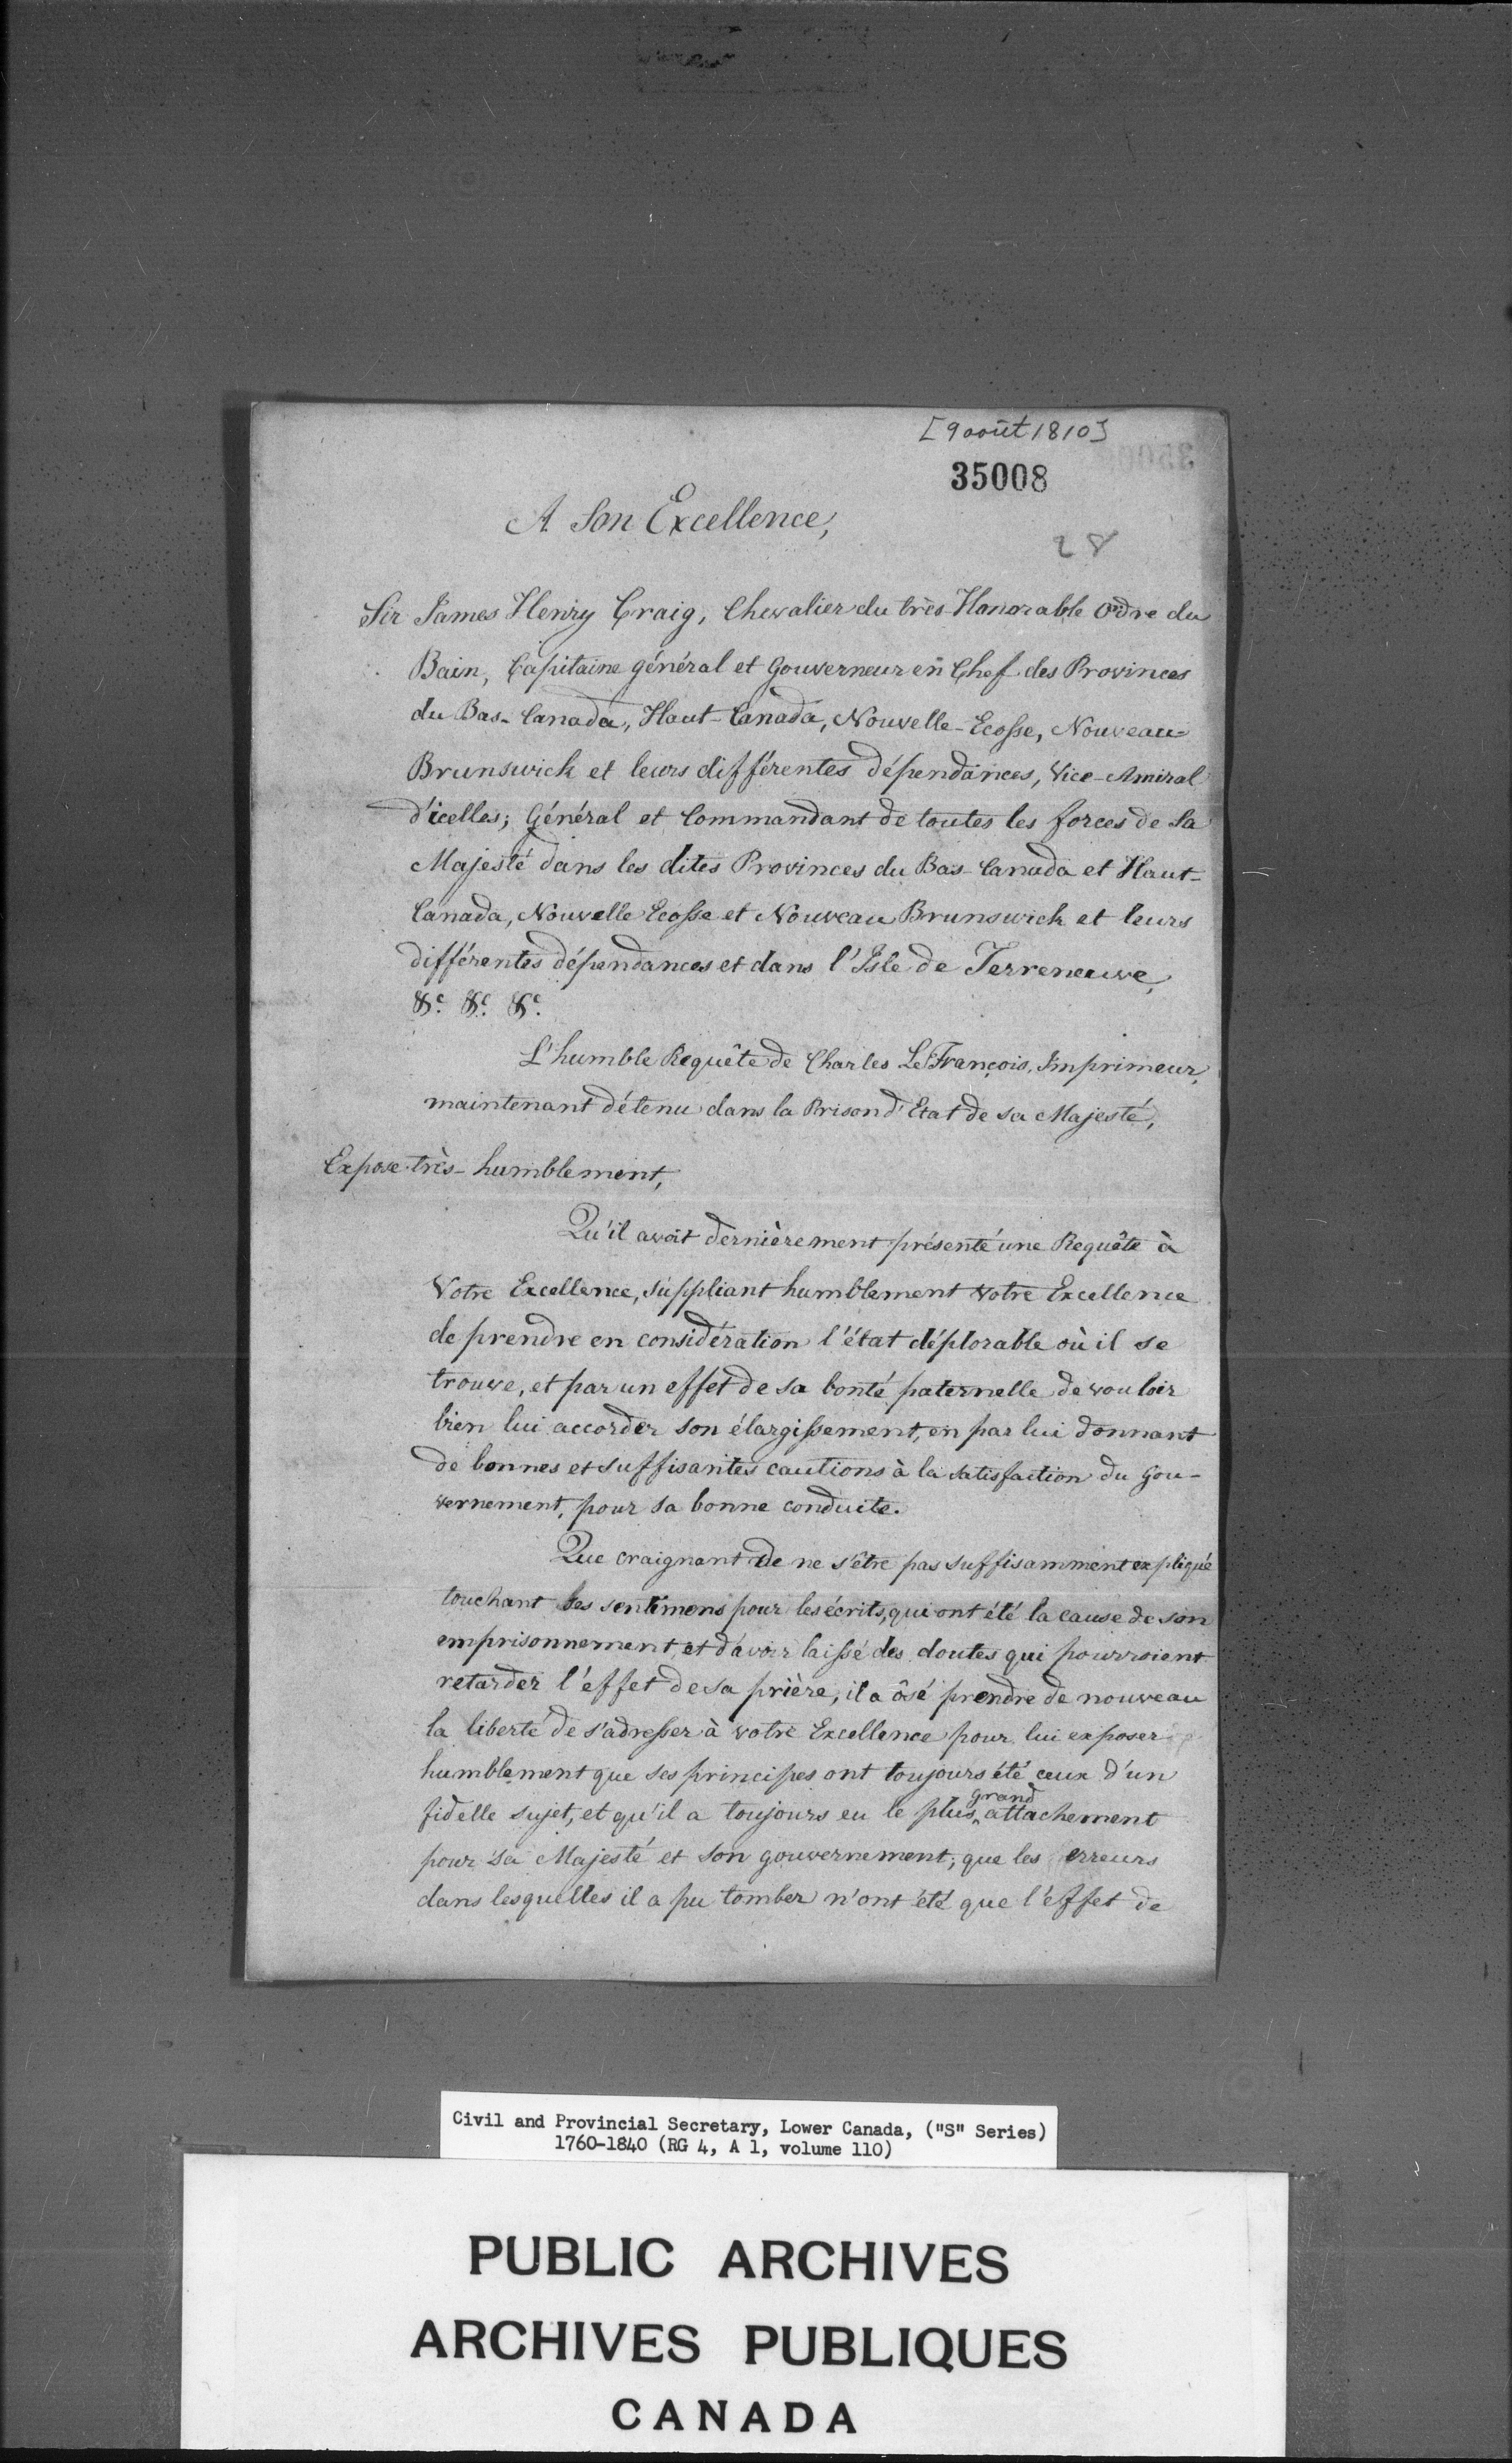 [9 août 1810]
35008
28
A Son Excellence,
Sir James Henry Craig, Chevalier du très-Honorable Ordre du
Bain, Capitaine général et Gouverneur en Chef des Provinces
du Bas-Canada, Haut-Canada, Nouvelle-Ecosse, Nouveau=
Brunswick et leurs différentes dépendances, Vice-Amiral
d'icelles; Général et Commandant de toutes les forces de Sa
Majesté dans les dites Provinces du Bas-Canada et Haut-
Canada, Nouvelle Ecosse et Nouveau Brunswick et leurs
différentes dépendances et dans l'Isle de Terreneuve,
&c. &c. &c.
L'humble Requête de Charles LeFrançois, Imprimeur,
maintenant détenu dans la Prison d'Etat de sa Majesté,
Expose très-humblement,
Qu'il avoit dernièrement présenté une Requête à
Votre Excellence, suppliant humblement Votre Excellence
de prendre en considération l'état déplorable où il se
trouve, et par un effet de sa bonté paternelle de vouloir
bien lui accorder son élargissement, en par lui donnant
de bonnes et suffisantes cautions à la satisfaction du Gou-
vernement, pour sa bonne conduite.
Que craignant de ne s'être pas suffisamment expliqué
touchant ses sentimens pour les écrits, qui ont été la cause de son
emprisonnement, et d'avoir laissé des doutes qui pourroient
retarder l'effet de sa prière, il a ôsé prendre de nouveau
la liberté de s'adresser à votre Excellence pour lui exposer
humblement que ses principes ont toujours été ceux d'un
fidelle sujet, et qu'il a toujours eu le plus grand attachement
pour sa Majesté et son gouvernement; que les erreurs
dans lesquelles il a pu tomber n'ont été que l'effet de
Civil and Provincial Secretary, Lower Canada, ("S" Series)
1760-1840 (RG 4, A 1, volume 110)
PUBLIC ARCHIVES
ARCHIVES PUBLIQUES
CANADA